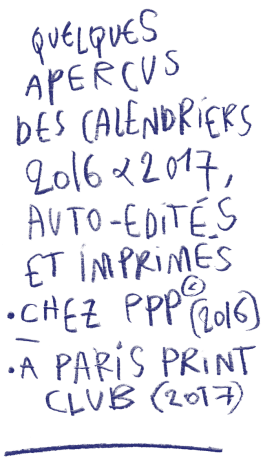 QUELQUES
APERCUS
DES CALENDRIERS
2016 & 2017,
AUTO-EDITÉS
ET IMPRIMÉS
• CHEZ PPP© (2016)
• À PARIS PRINT
CLUB (2017)